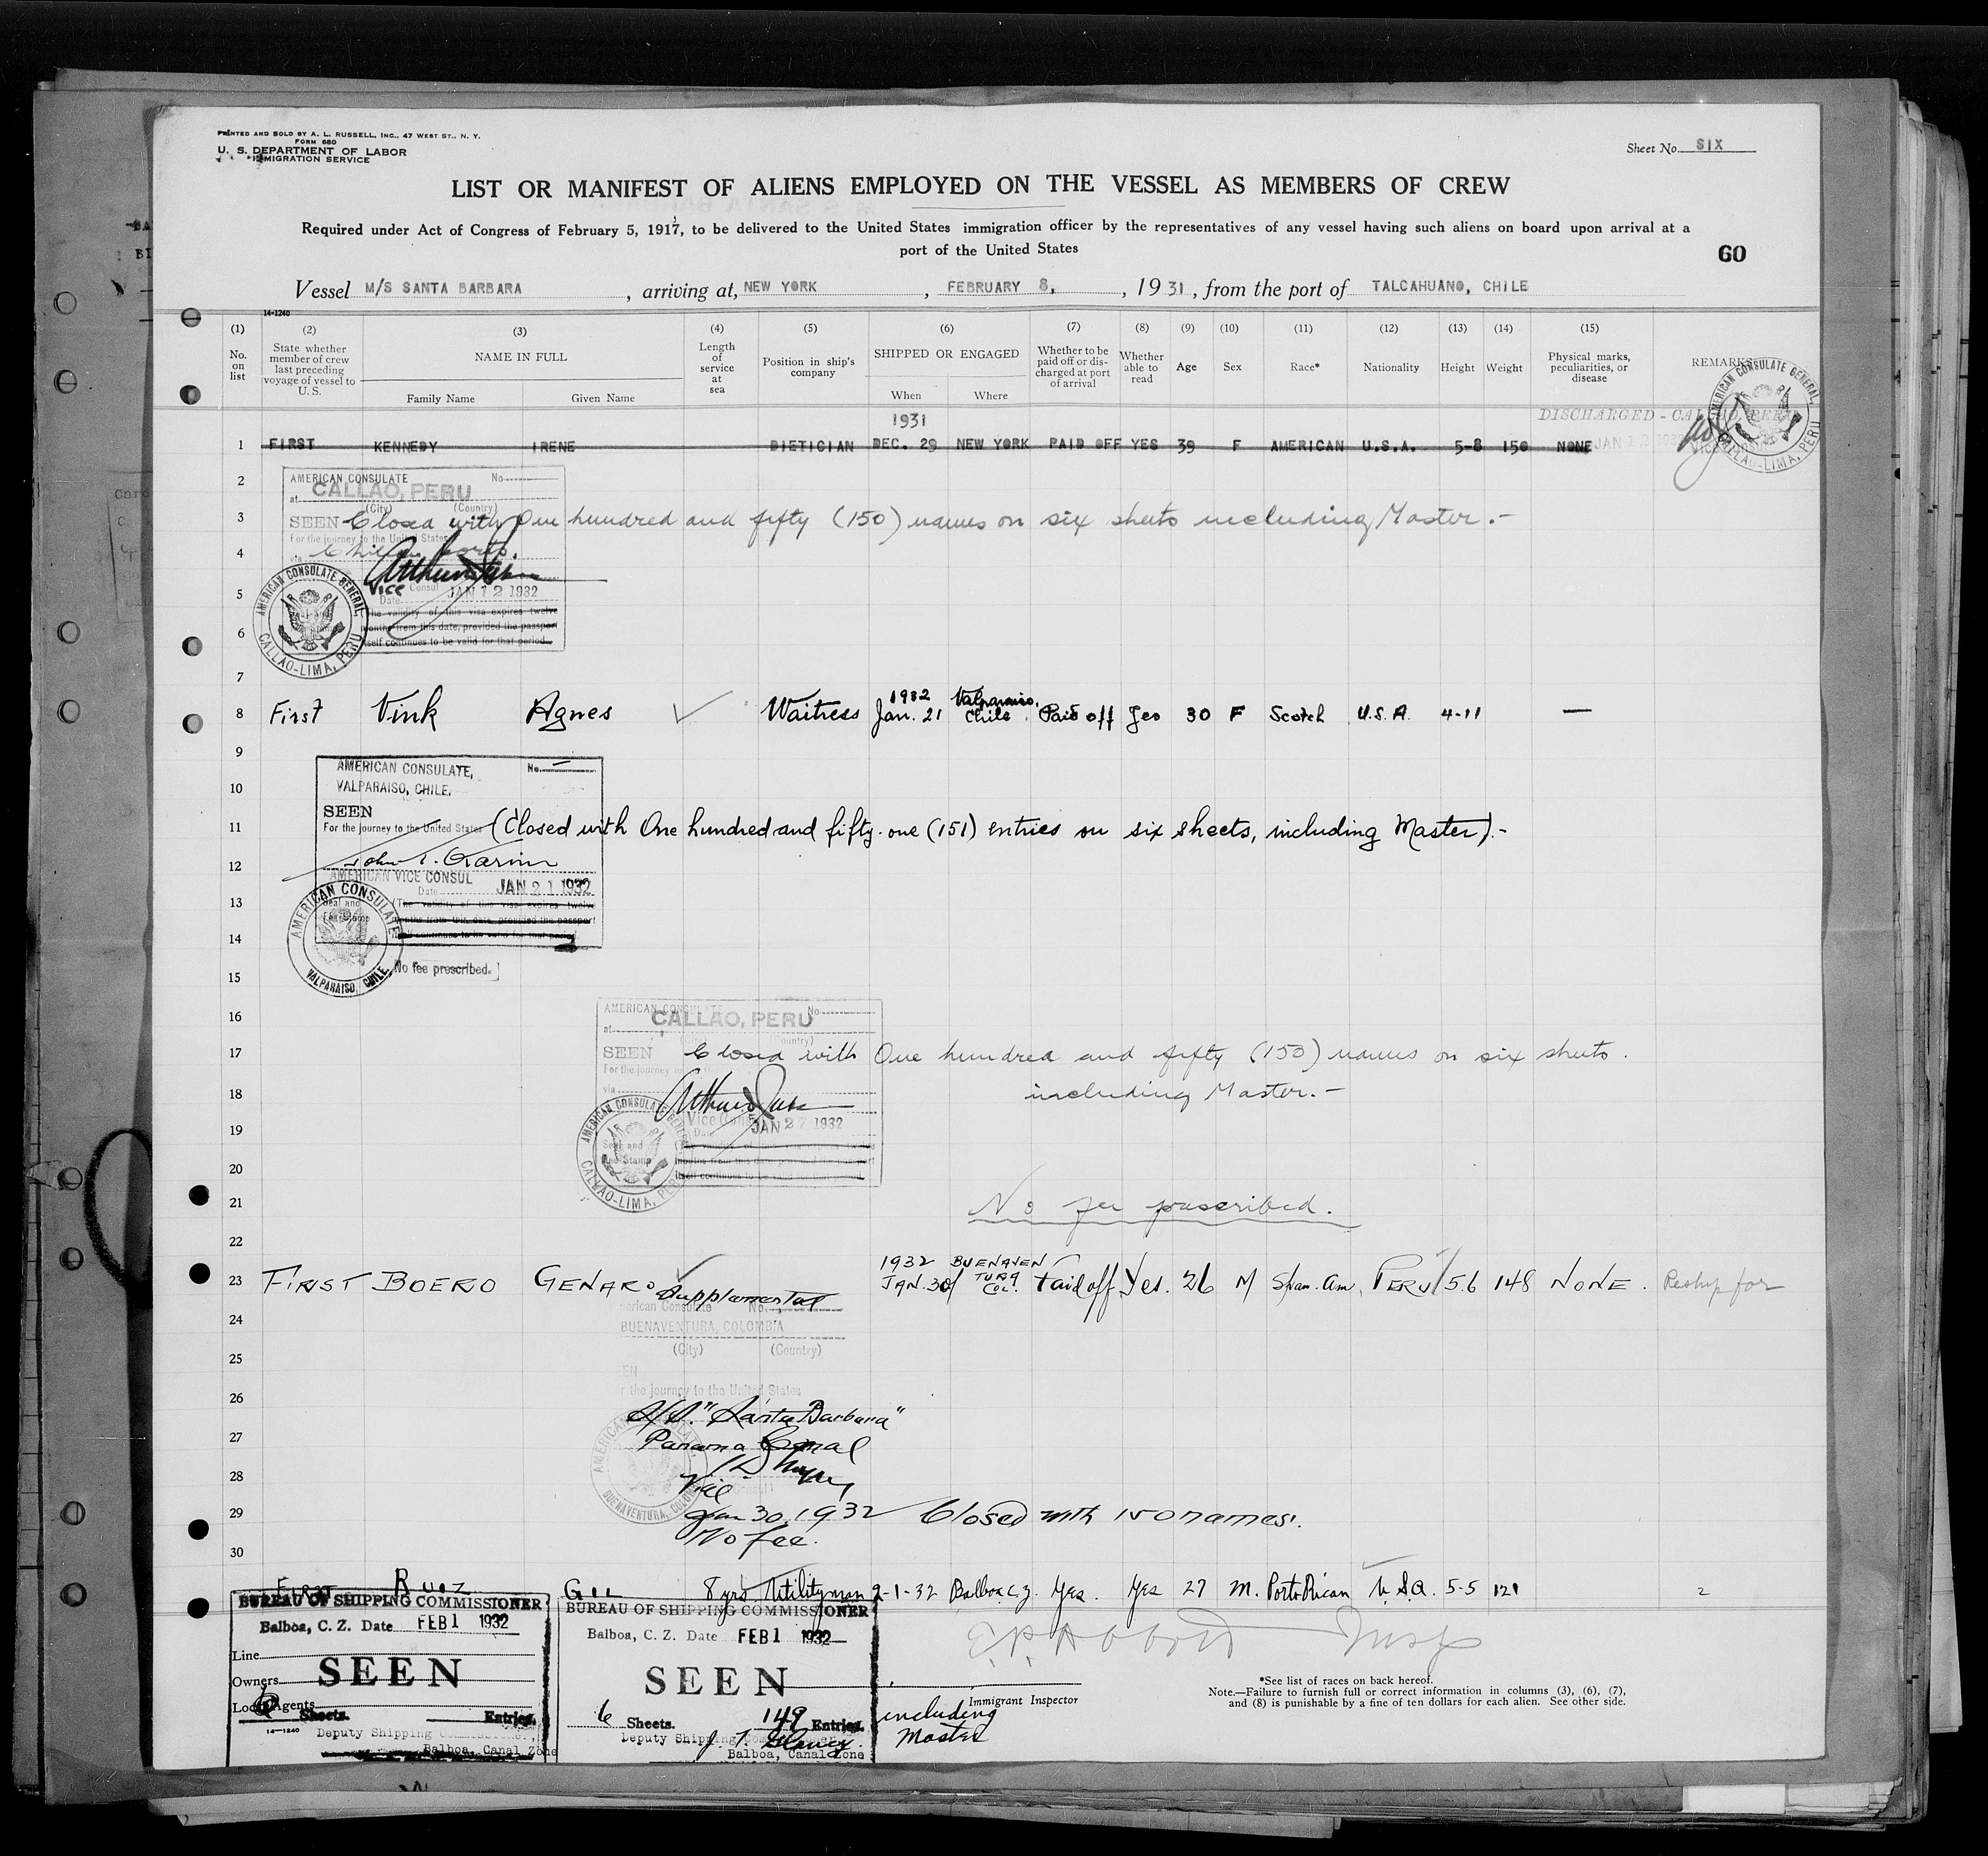 PRINTED AND SOLD BY A. L. RUSSELL, INC., 47 WEST ST., N. Y.
FORM 680
U. S. DEPARTMENT OF LABOR
IMMIGRATION SERVICE
Sheet No. SIX
LIST OR MANIFEST OF ALIENS EMPLOYED ON THE VESSEL AS MEMBERS OF CREW
Required under Act of Congress of February 5, 1917, to be delivered to the United States immigration officer by the representatives of any vessel having such aliens on board upon arrival at a
port of the United States
60
Vessel M/S SANTA BARBARA, arriving at, NEW YORK, FEBRUARY 8, 1931, from the port of TALCAHUANO, CHILE
14-1240
(1) (2) (3) (4) (5) (6) (7) (8) (9) (10) (11) (12) (13) (14) (15)
No. on list State whether member of crew last preceding voyage of vessel to U. S. NAME IN FULL Family Name Given Name Length of service at sea Position in ship's company SHIPPED OR ENGAGED When Where Whether to be paid off or discharged at port of arrival Whether able to read Age Sex Race* Nationality Height Weight Physical marks, peculiarities, or disease REMARKS
AMERICAN CONSULATE GENERAL, CALLAO-LIMA, PERU
1931
DISCHARGED - CALLAO, PERU
1 FIRST KENNEDY IRENE DIETICIAN DEC. 29 NEW YORK PAID OFF YES 39 F AMERICAN U.S.A. 5-8 150 NONE JAN 12 1932
2 AMERICAN CONSULATE No.
at CALLAO, PERU
(City) (Country)
3 SEEN Closed with One hundred and fifty (150) names on six sheets including Master.-
For the journey to the United States
4 via Chilean ports.
5 Vice Consul
Date JAN 12 1932
AMERICAN CONSULATE GENERAL, CALLAO-LIMA, PERU
The validity of this visa expires twelve
6 months from this date, provided the passport
itself continues to be valid for that period.
7
1932 Valparaiso,
8 First Vink Agnes Waitress Jan. 21 Chile Paid off Yes 30 F Scotch U.S.A. 4-11 —
9 AMERICAN CONSULATE, No. —
10 VALPARAISO, CHILE.
SEEN
11 For the journey to the United States (Closed with One hundred and fifty-one (151) entries on six sheets, including Master).-
12 AMERICAN VICE CONSUL
Date JAN 21 1932
13 Seal and Fee Stamp (The validity of this visa expires twelve
months from this date, provided the passport
14 itself continues to be valid for that period.
AMERICAN CONSULATE VALPARAISO, CHILE.
15 No fee prescribed.
16 AMERICAN CONSULATE No.
at CALLAO, PERU
(City) (Country)
17 SEEN Closed with One hundred and fifty (150) names on six sheets.
For the journey to
18 via including Master.-
19 Vice Consul
Date JAN 27 1932
AMERICAN CONSULATE GENERAL, CALLAO-LIMA, PERU
20 Seal and Fee Stamp months from this date, provided the passport
itself continues to
21 No fee prescribed.
22
1932 BUENAVENTURA
23 FIRST BOERO GENARO JAN. 30 COL. Paid off Yes. 26 M Span. Am. PERU 5.6 148 NONE. Reship for
Supplemental
American Consulate No.
24 BUENAVENTURA, COLOMBIA
(City) (Country)
25 SEEN
For the journey to the United States
26 S/S. "Santa Barbara"
27 Panama Canal
28 Vice
AMERICAN CONSULATE BUENAVENTURA, COLOMBIA
29 Jan 30, 1932 Closed with 150 names.
No fee.
30
FIRST Ruiz 8 yrs Utilityman 2-1-32 Balboa C.Z. Yes. Yes 27 M. Porto Rican U.S.A. 5-5 121 2
BUREAU OF SHIPPING COMMISSIONER
Balboa, C. Z. Date FEB 1 1932
Line
SEEN
Owners
Local Agents
Sheets. Entries.
14-1240
Deputy Shipping Commissioner,
Balboa, Canal Zone
BUREAU OF SHIPPING COMMISSIONER
Balboa, C. Z. Date FEB 1 1932
SEEN
6 Sheets. 149 Entries. including Master
Deputy Shipping Commissioner
Balboa, Canal Zone
Immigrant Inspector
*See list of races on back hereof.
Note.—Failure to furnish full or correct information in columns (3), (6), (7),
and (8) is punishable by a fine of ten dollars for each alien. See other side.